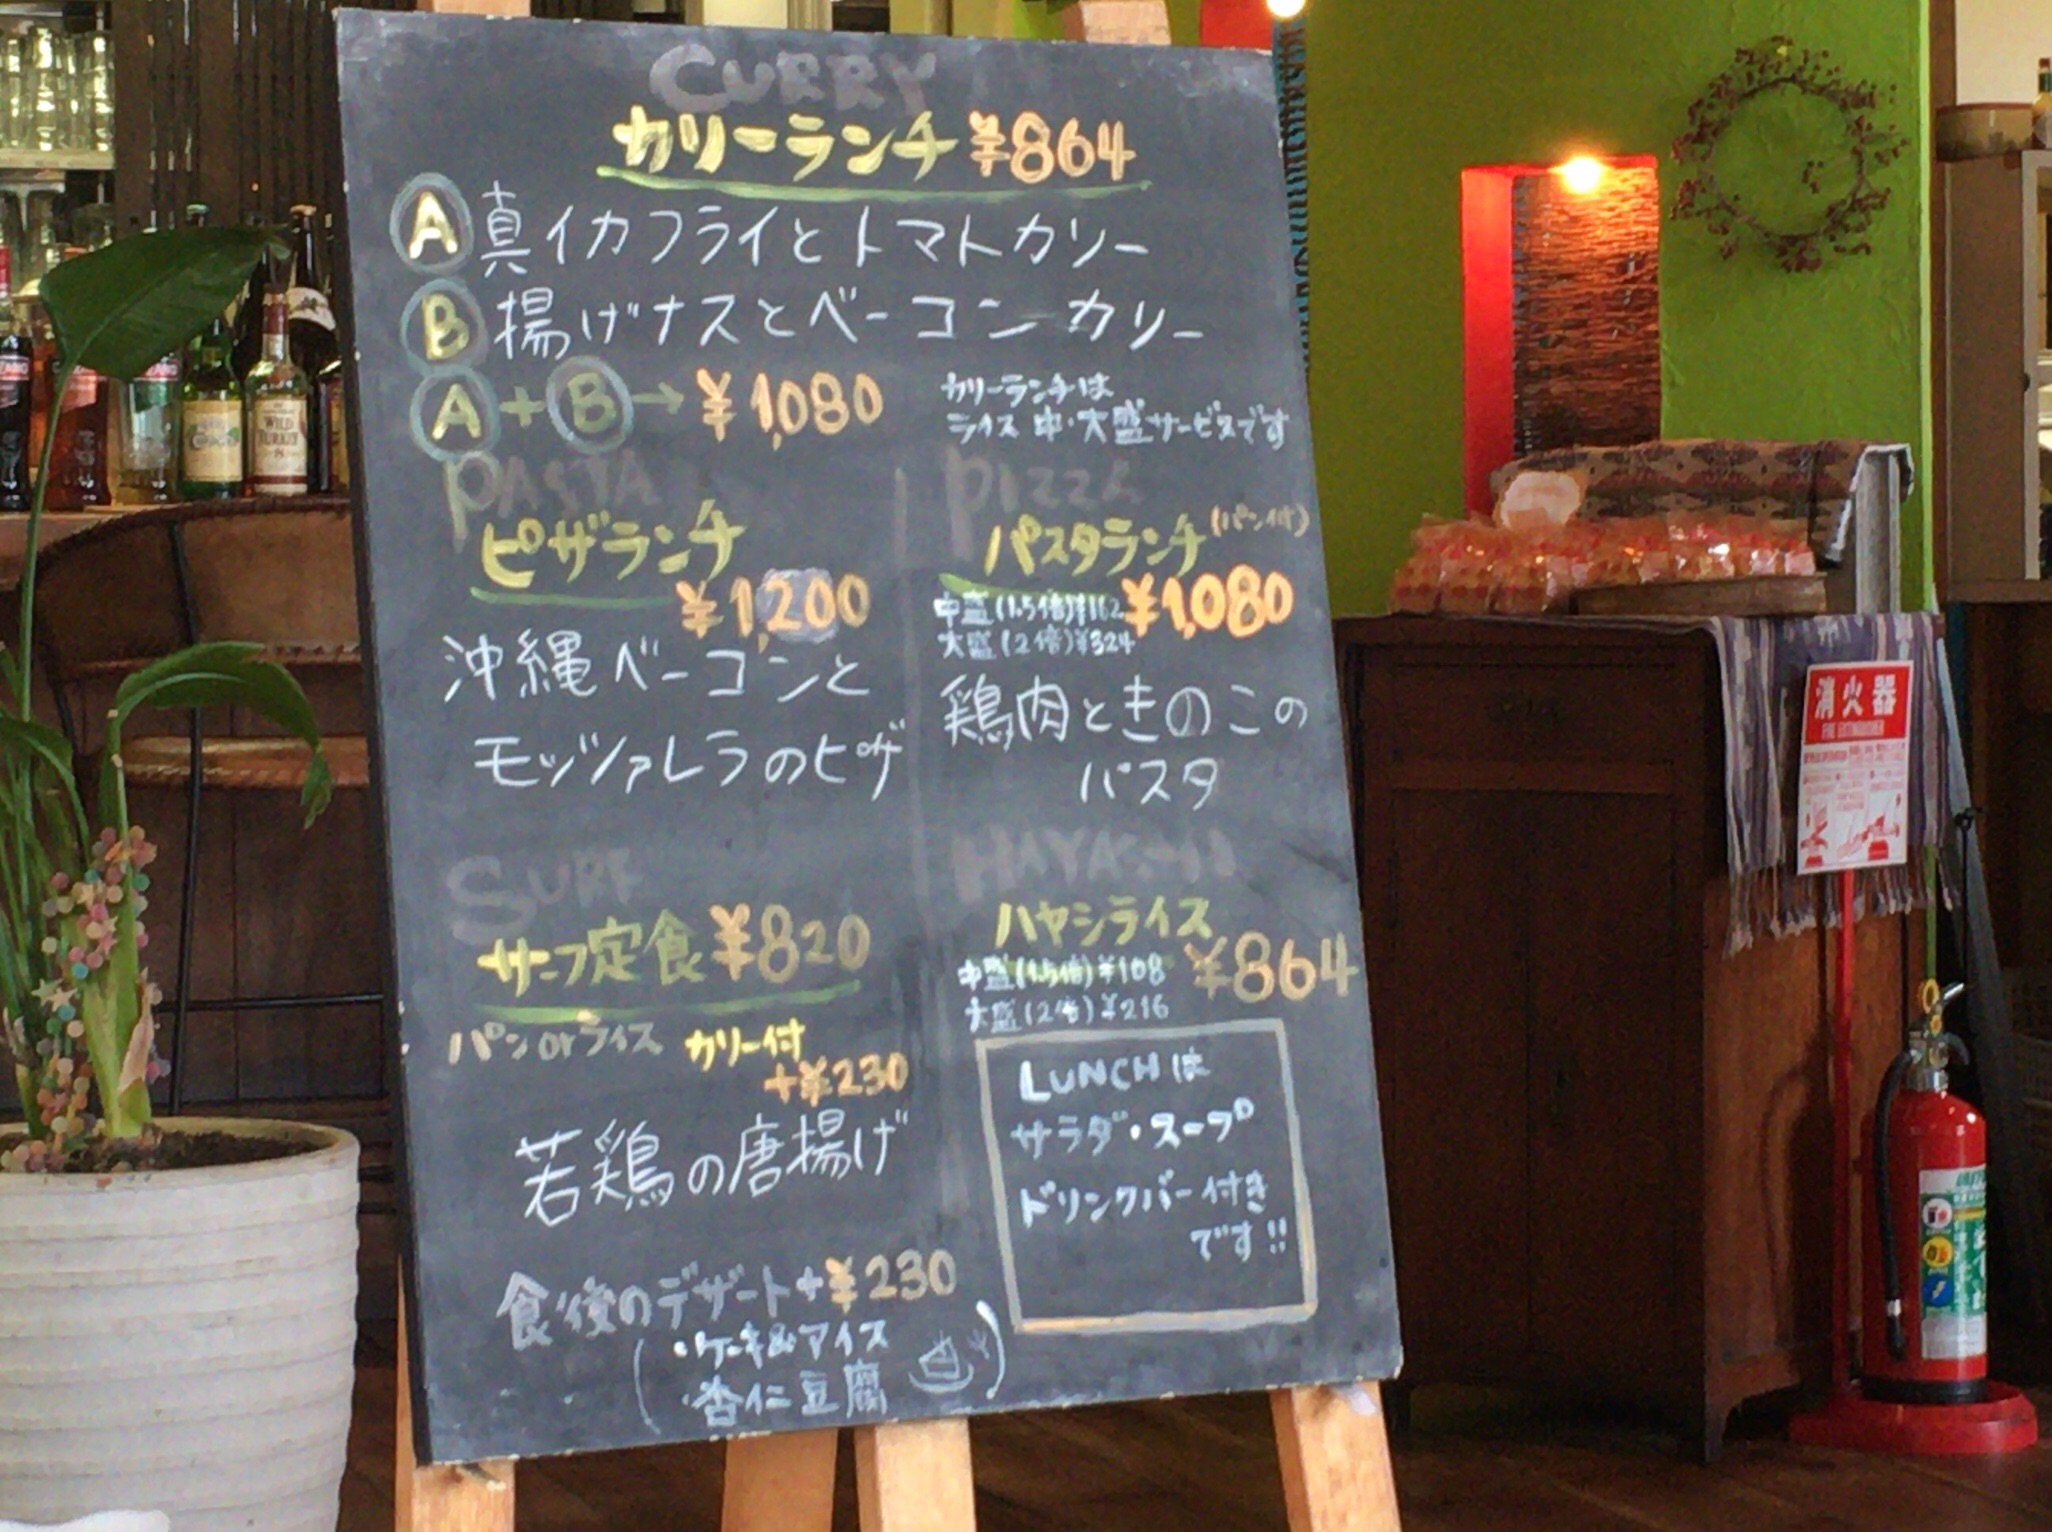 CURRY
カリーランチ ¥864
A 真イカフライとトマトカリー
B 揚げナスとベーコンカリー
A+B→ ¥1,080
カリーランチは
ライス 中・大盛サービスです
PASTA
ピザランチ
¥1,200
沖縄ベーコンと
モッツァレラのピザ
PIZZA
パスタランチ(パン付)
中盛(1.5倍)¥162 ¥1,080
大盛(2倍)¥324
鶏肉ときのこの
パスタ
SURF
サーフ定食 ¥820
パンorライス カリー付
+¥230
若鶏の唐揚げ
HAYASHI
ハヤシライス
中盛(1.5倍)¥108 ¥864
大盛(2倍)¥216
LUNCHは
サラダ・スープ
ドリンクバー付き
です!!
食後のデザート+¥230
・ケーキ&アイス
・杏仁豆腐
WILD
TURKEY
消火器
FIRE EXTINGUISHER